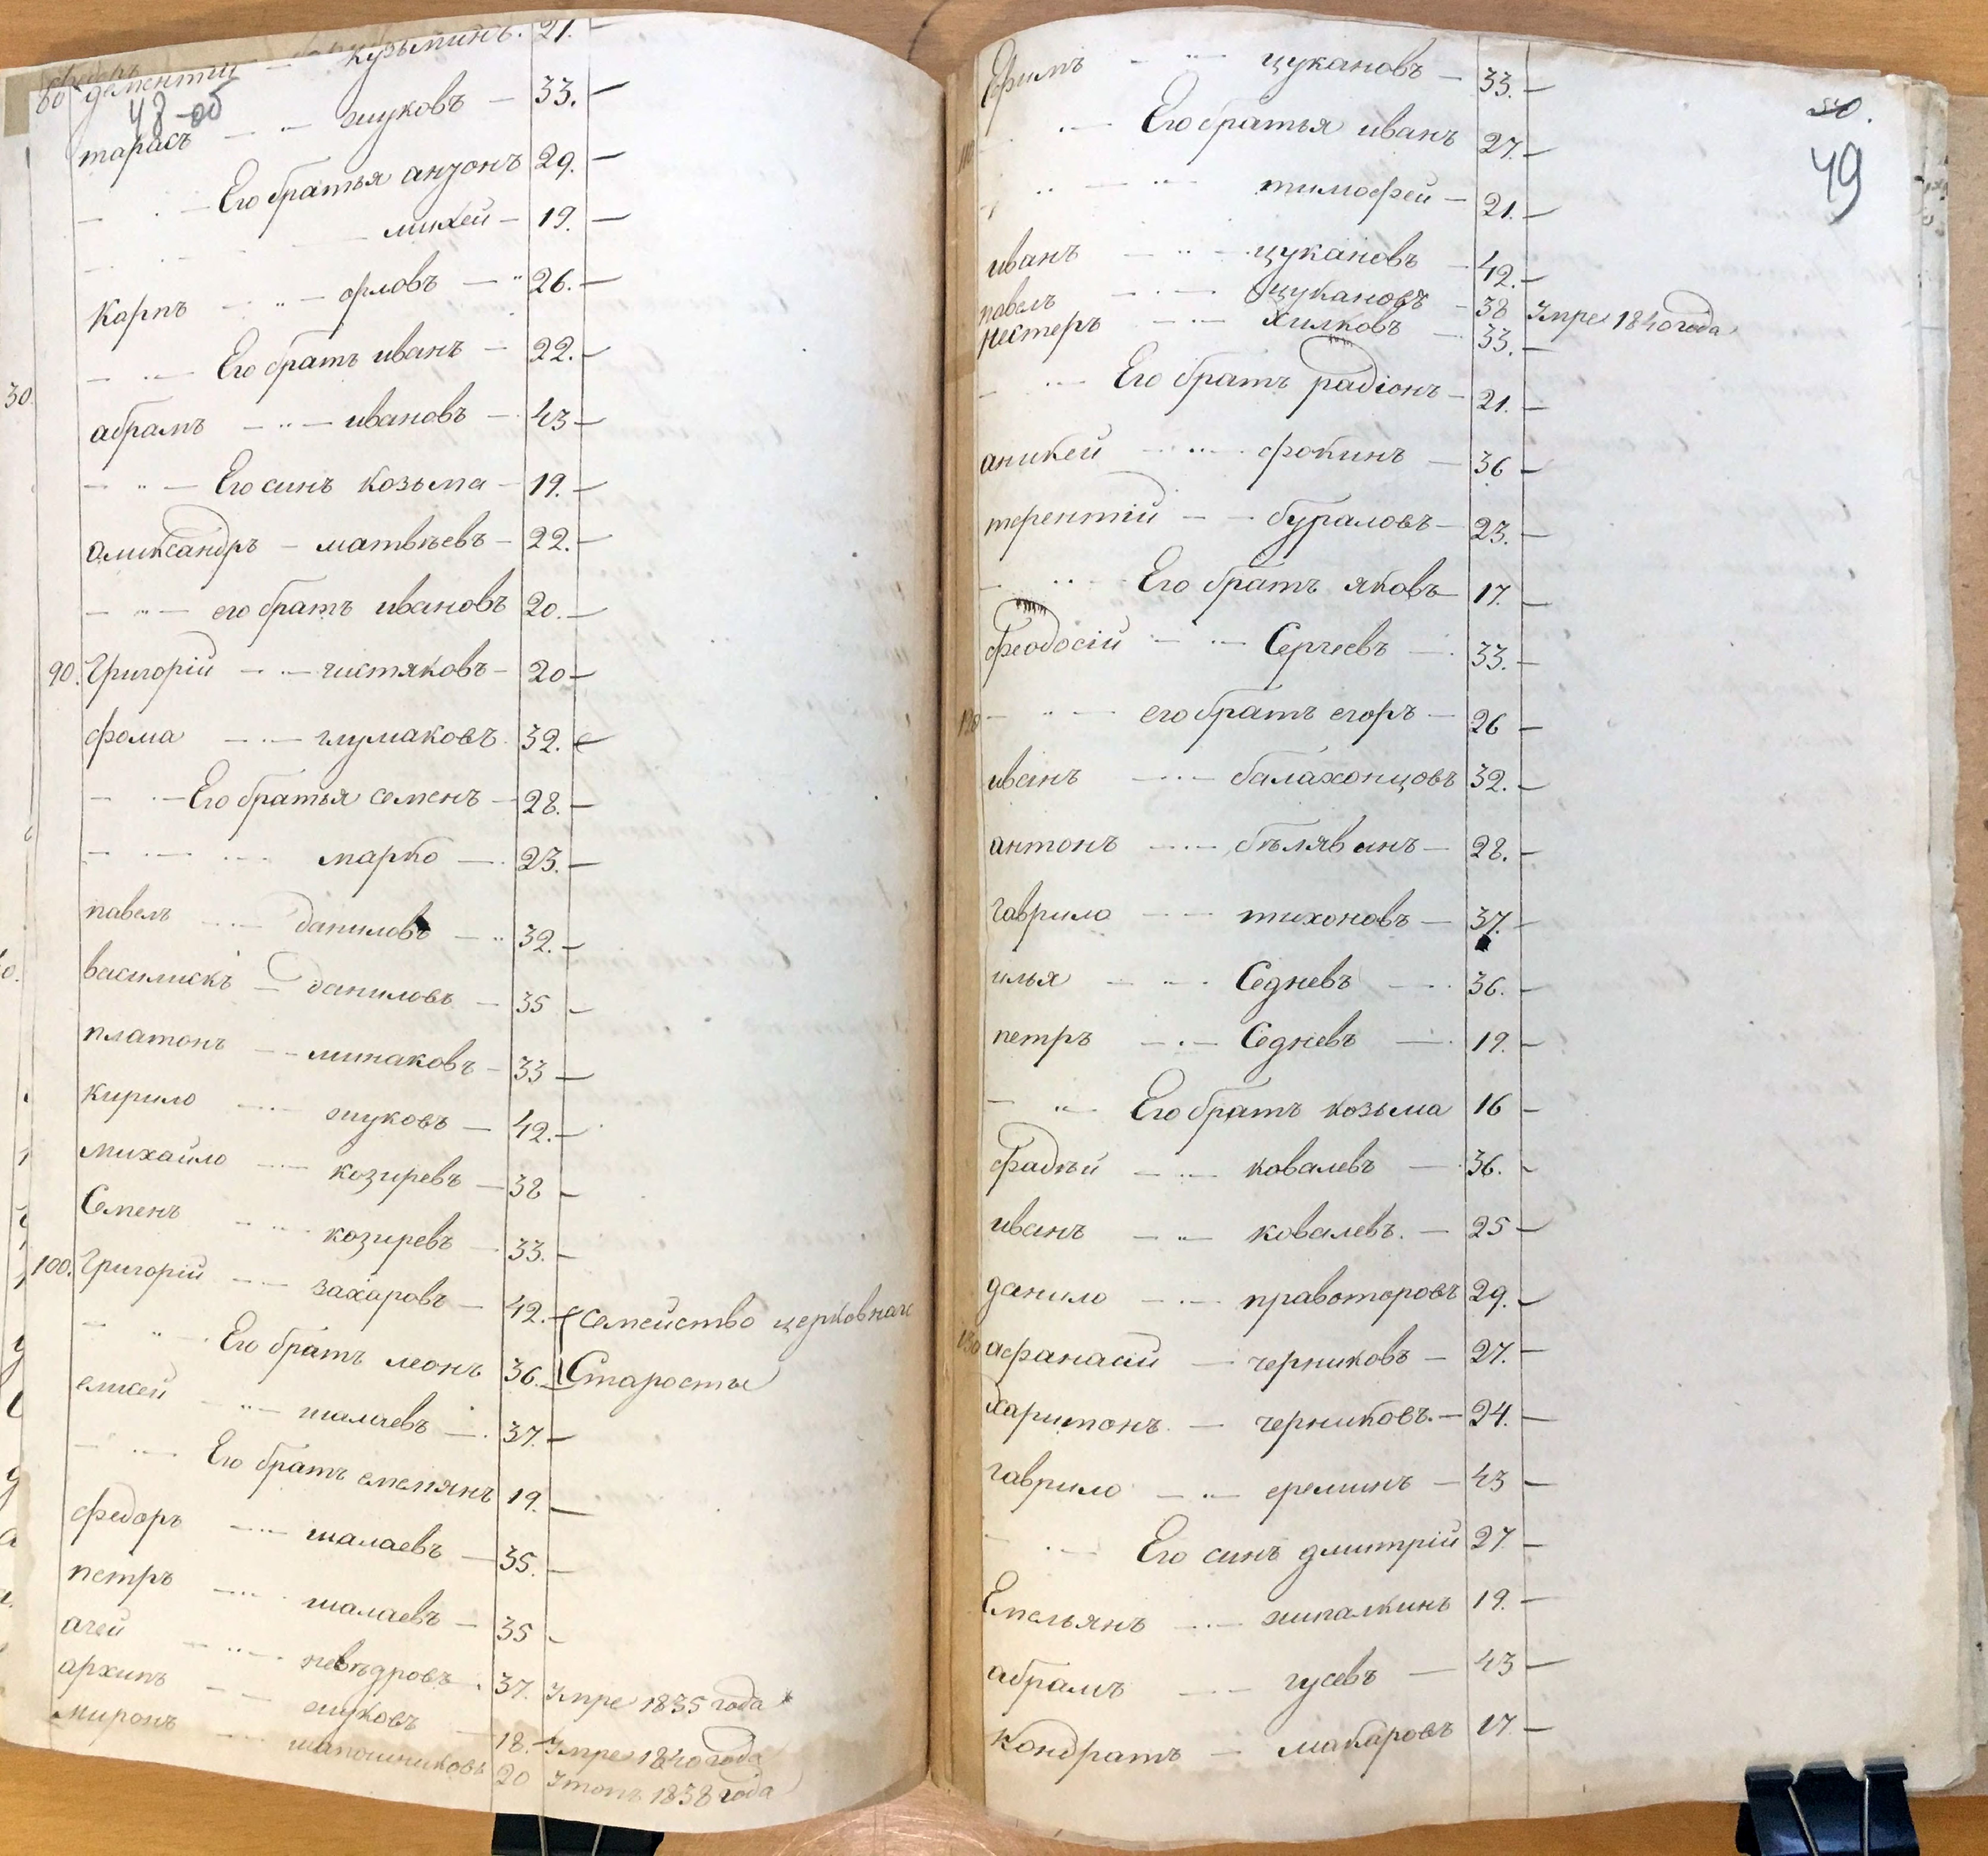 80. дементий — кузьминъ. 21. —
48-об
тарасъ — „ — жуковъ — 33. —
— „ — Его братья антонъ 29. —
михей — 19. —
карпъ — „ — орловъ — „ 26. —
— „ — Его братъ иванъ — 22. —
абрамъ — „ — ивановъ — 43 —
— „ — Его синъ козьма — 19. —
александръ — матвѣевъ — 22. —
— „ — его братъ ивановъ 20. —
90. Григорій — „ — чистяковъ — 20 —
фома — „ — глумаковъ 32. —
— „ — Его братья семенъ — 28. —
— „ — марко — 23. —
павелъ — „ — даниловъ — „ 32. —
василискъ — даниловъ — 35 —
платонъ — — минаковъ — 33 —
кирило — „ — жуковъ — 42. —
михайло — „ — козиревъ — 38 —
Семенъ — „ — козиревъ — 33. —
100. Григорій — „ — захаровъ — 42. — Семейство церковнаго
— „ — Его братъ леонъ 36. — Старосты
елисей — „ — шалаевъ — 37. —
— „ — Его братъ емелянъ 19. —
федоръ — „ — шалаевъ — 35. —
петръ — „ — шалаевъ — 35 —
агей — „ — невѣдровъ 37. Умре 1835 года
архипъ — — жуковъ — 18. — Умре 1840 года
миронъ — — шапошниковъ 20 Утопъ 1838 года
30.
50.
49
Ефимъ — „ — цукановъ — 33. —
110 — „ — Его братья иванъ 27. —
— „ — „ тимофей — 21. —
иванъ — „ — цукановъ — 42. —
павелъ — „ — цукановъ — 38 Умре 1840 года
нестеръ — „ — хилковъ — 33. —
— „ — Его братъ радіонъ — 21. —
аникей — „ — фокинъ — 36 —
терентій — — бураловъ — 23. —
— „ — Его братъ яковъ — 17. —
феодосій — „ — Сергеевъ — 33. —
120 — „ — его братъ егоръ — 26 —
иванъ — „ — балахонцовъ 32. —
антонъ — „ — бѣлявинъ — 28. —
гаврило — — тихоновъ — 37. —
илья — „ — Седневъ — 36. —
петръ — „ — Седневъ — 19. —
— „ — Его братъ козьма 16 —
фадѣй — „ — ковалевъ — 36. —
иванъ — „ — ковалевъ. — 25 —
данило — „ — правоторовъ 29. —
130 афанасий — черниковъ — 27. —
харитонъ — черниковъ. — 24. —
гаврило — „ — ереминъ — 43 —
— „ — Его синъ дмитрій 27 —
Емельянъ — „ — жигалкинъ 19. —
абрамъ — „ — гусевъ — 43 —
Кондратъ — макаровъ 17. —